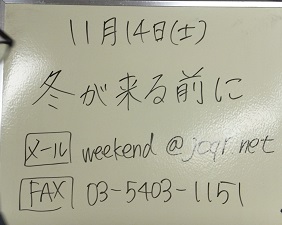 11月14日(土)
冬が来る前に
メール weekend@joqr.net
FAX 03-5403-1151